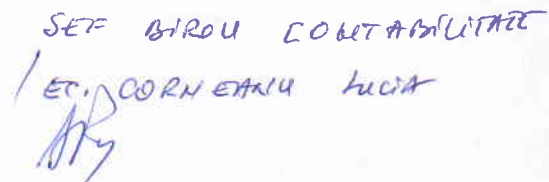 SEF BIROU CONTABILITATE
EC. CORNEANU LUCIA